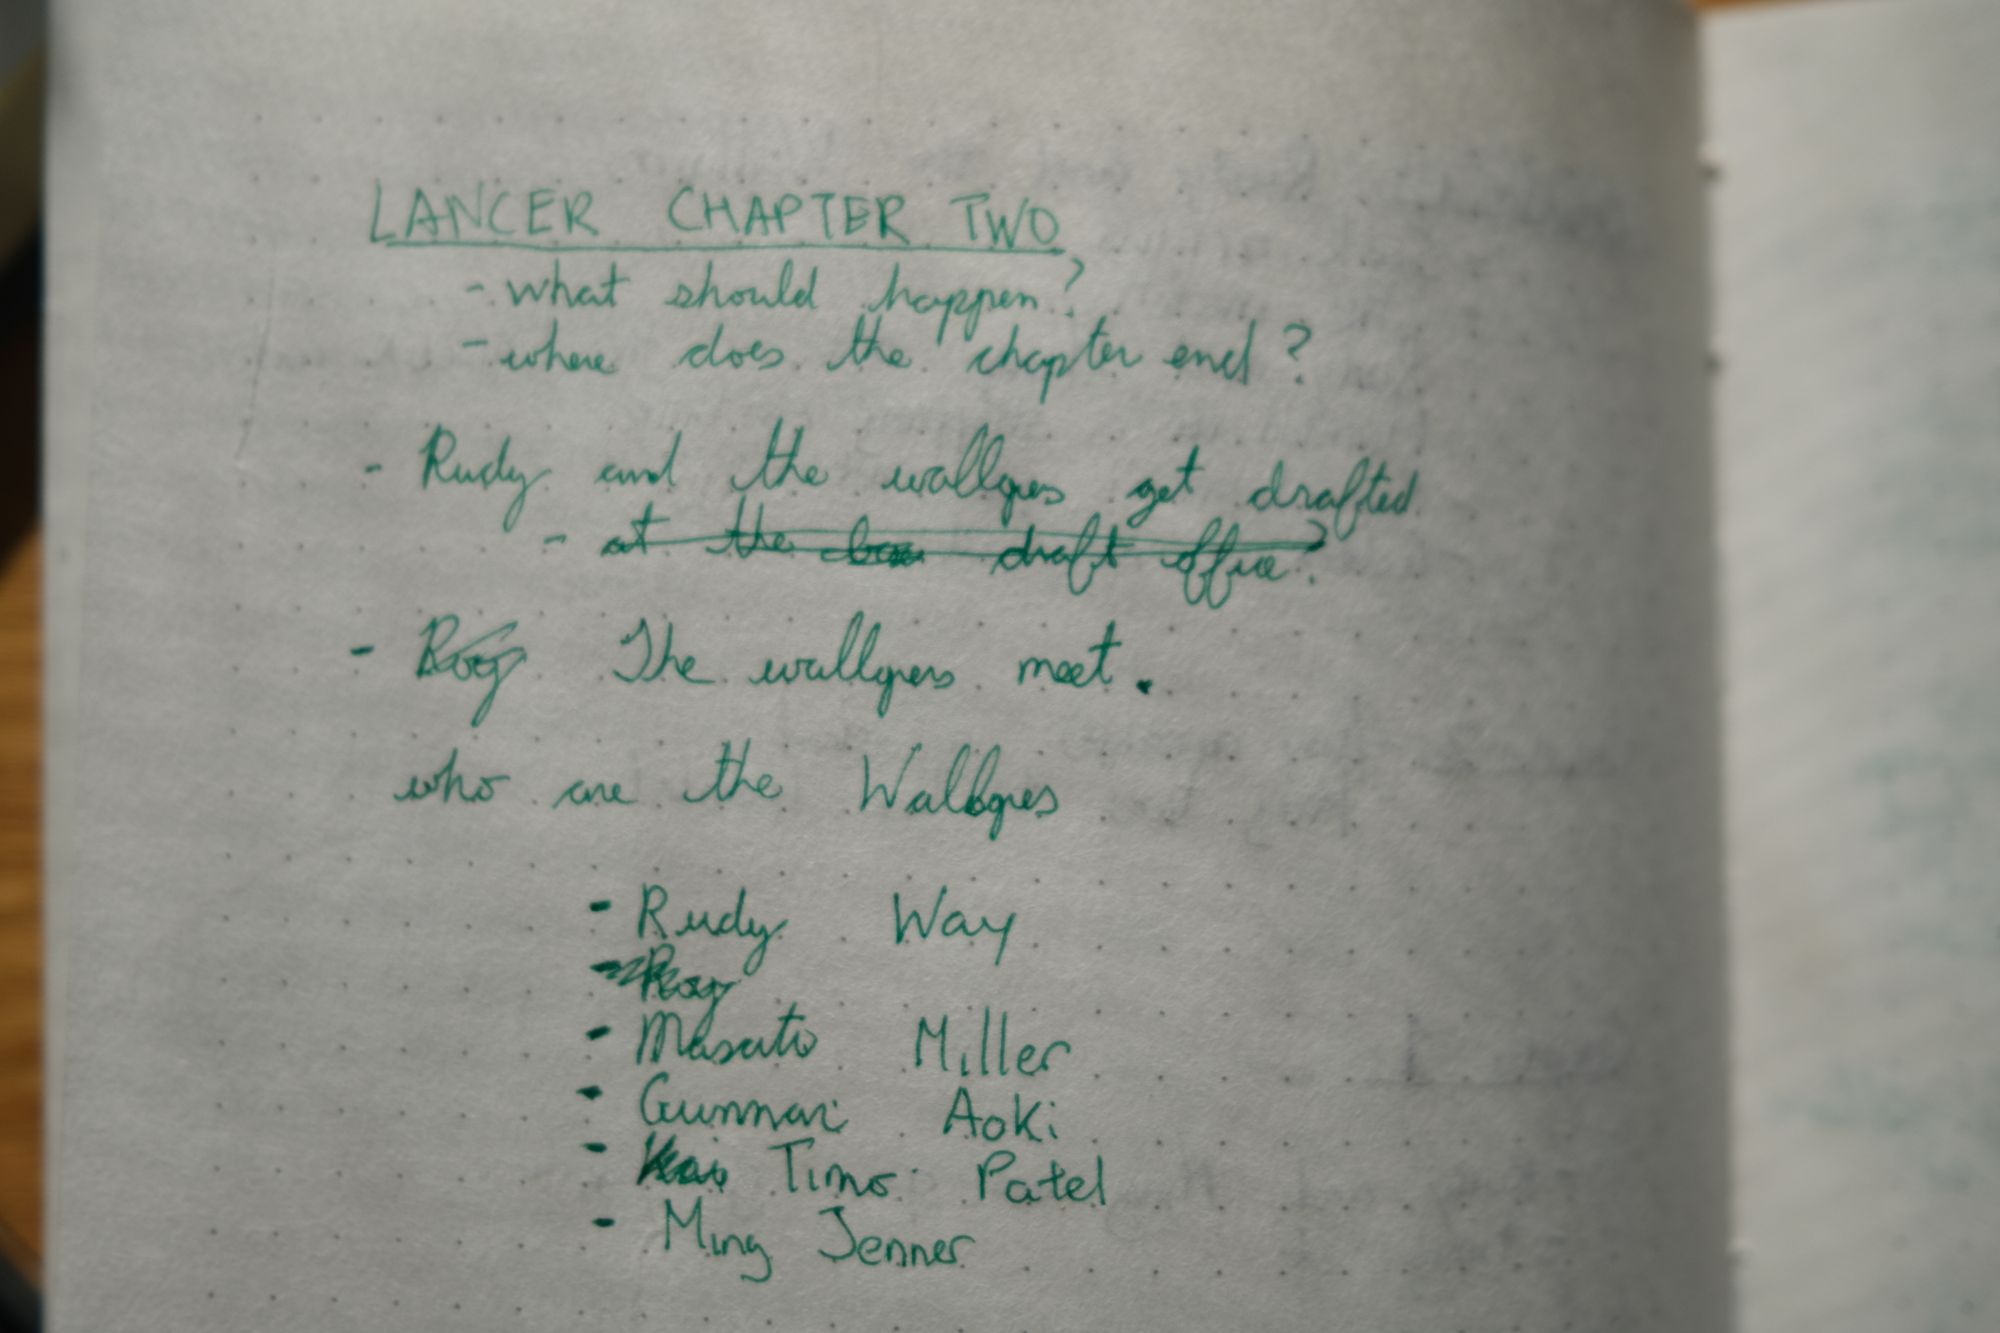 LANCER CHAPTER TWO
- what should happen?
- where does the chapter end?
- Rudy and the wallgres get drafted
- at the draft office?
- The wallgres meet.
who are the Wallgres
- Rudy Way
- Masato Miller
- Gunnar Aoki
- Kai Timo Patel
- Ming Jenner